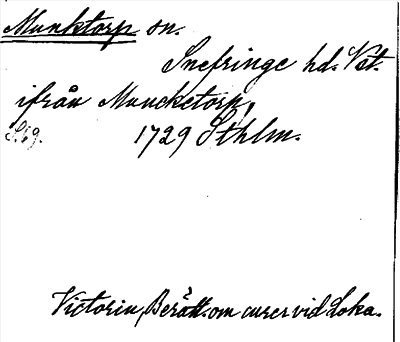 Munktorp sn.
Snefringe hd. Vst.
ifrån Muncketorp,
S. 69.
1729 Sthlm.
Victorin, Berätt. om curer vid Loka.